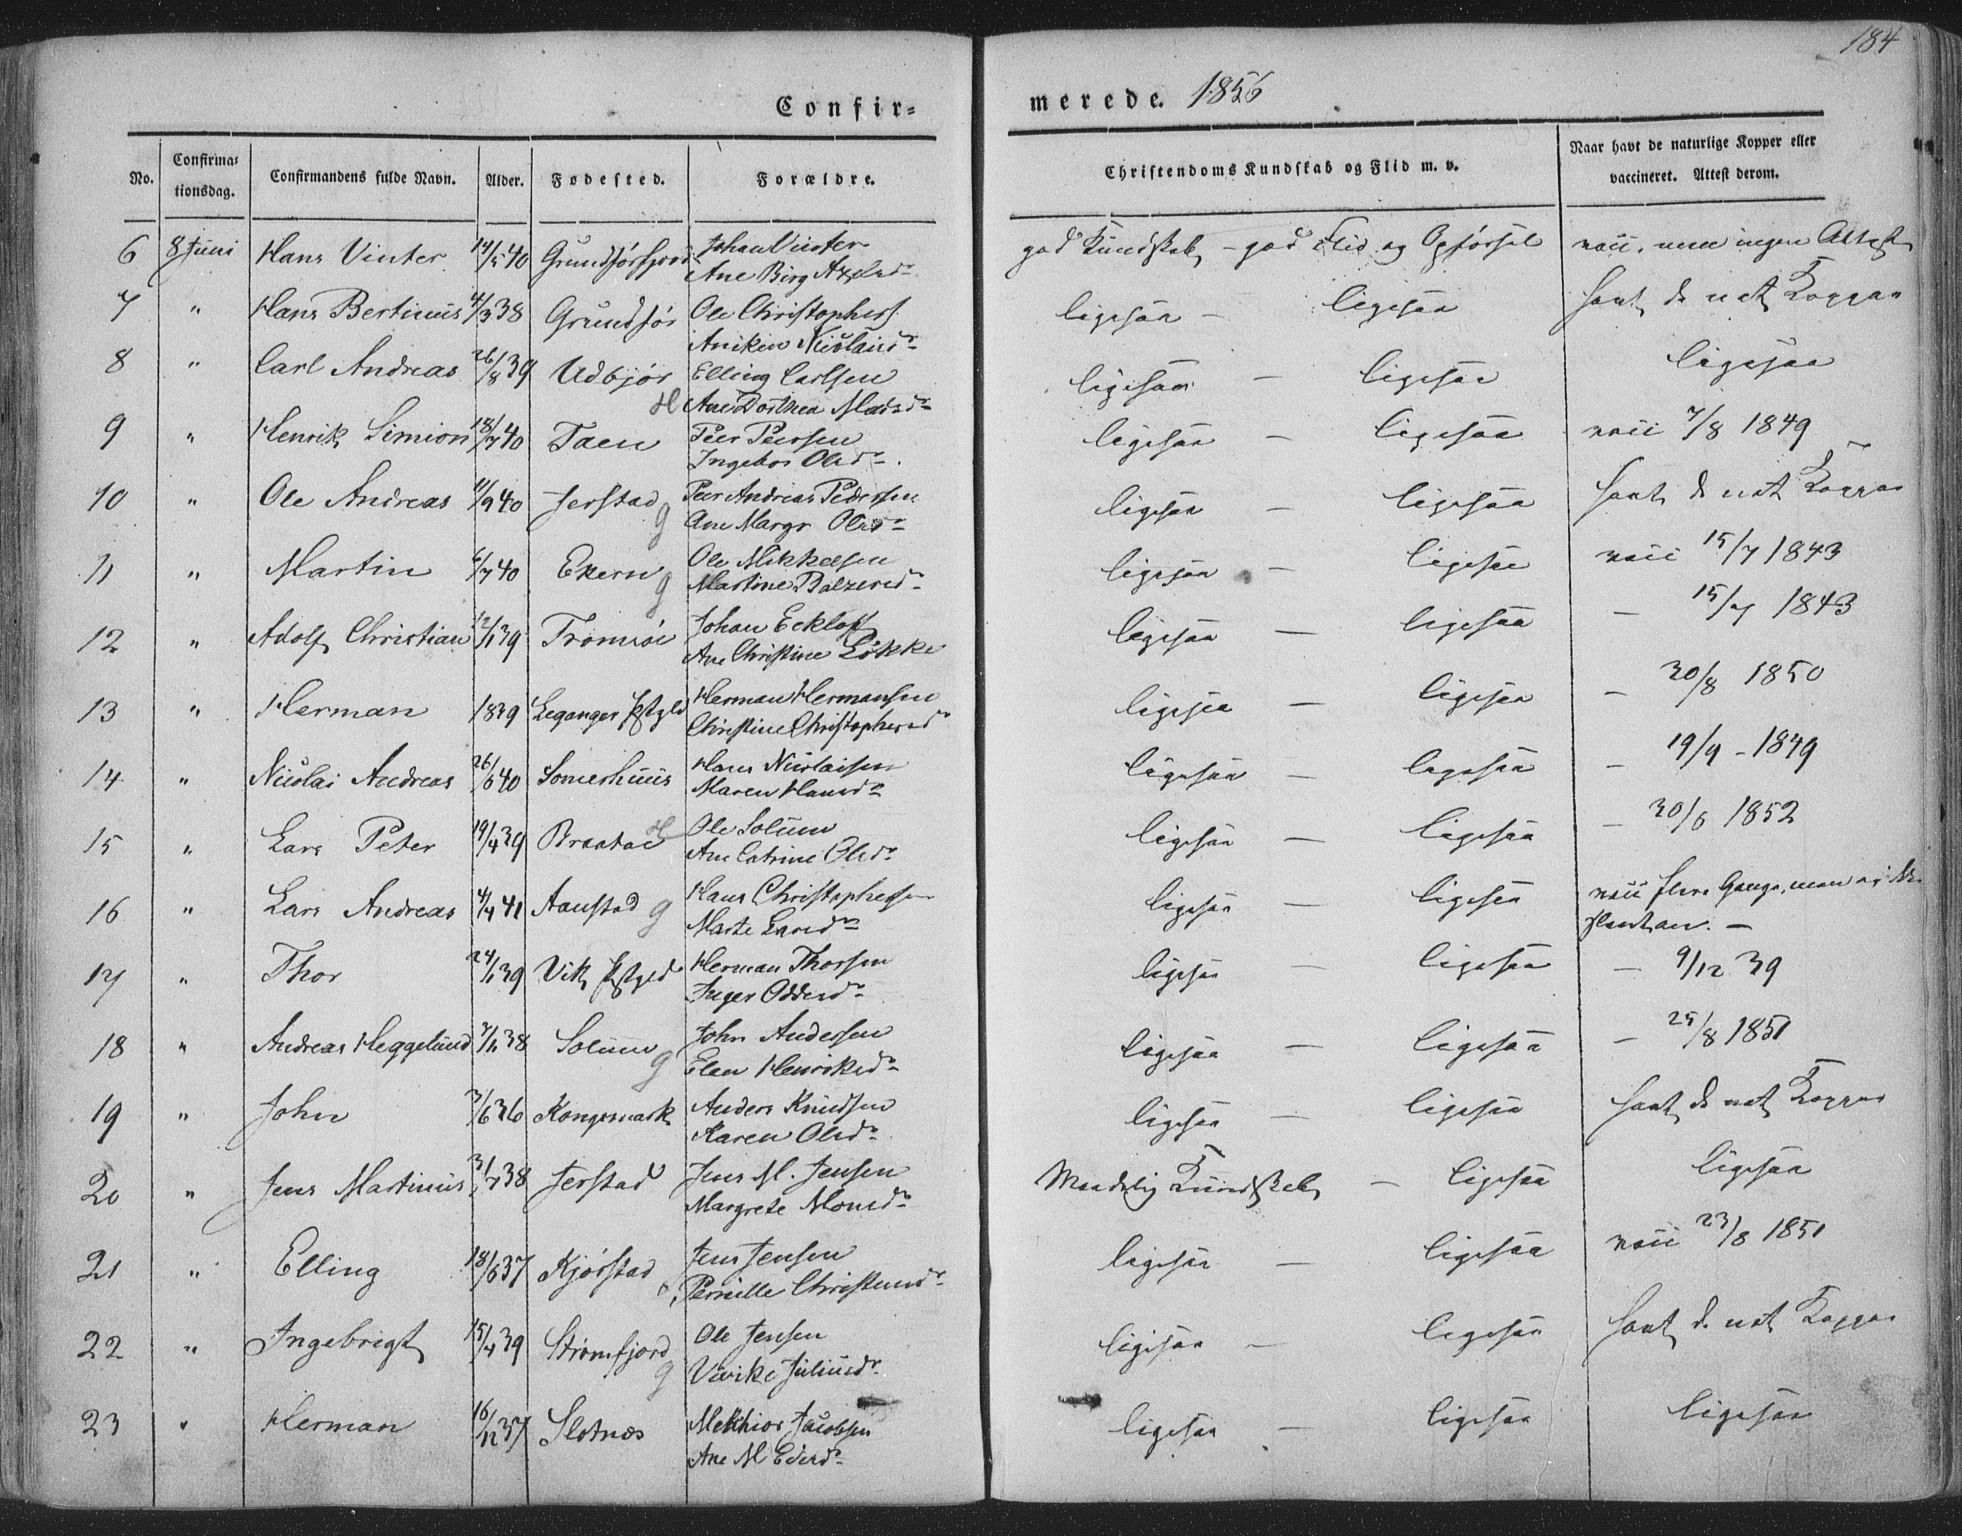 184
Confir-
merede. 1856
No. Confirma-tionsdag. Confirmandens fulde Navn. Alder. Fødested. Forældre. Christendoms Kundskab og Flid m. v. Naar havt de naturlige Kopper eller vaccineret. Attest derom.
6 8 Juni Hans Vinter 14/5 40 Johan Vinter god Kundskab – god Flid og Opførsel vacc. men ingen Attest
7 " Hans Bertinus 4/3 38 Grundfør Ole Christophers. ligesaa – ligesaa havt de nat Kopper
Aniken Nicolaisd.
8 " Carl Andreas 26/8 39 Udbjør Elling Carlsen ligesaa – ligesaa ligesaa
H Ane Dorthea Madsd.
9 " Henrik Simion 18/7 40 Taen Peer Peersen ligesaa – ligesaa vacc 7/8 1849
Ingebor Olsd.
10 " Ole Andreas 11/9 40 Jerstad g Peer Andreas Pedersen ligesaa – ligesaa havt de nat Kopper
Ane Margr Olsd.
11 " Martin 6/7 40 Ekern g Ole Mikkelsen ligesaa – ligesaa vacc 15/7 1843
Martine Balzersd.
12 " Adolf Christian 12/1 39 Tromsøe Johan Ecklof ligesaa – ligesaa – 15/7 1843
Ane Christine Løkke
13 " Herman 1839 Leganger Pstgld Herman Hermansen ligesaa – ligesaa – 30/8 1850
Christine Christophersd.
14 " Nicolai Andreas 26/6 40 Somerhuus Hans Nicolaisen ligesaa – ligesaa – 19/9 – 1849
Maren Hansd.
15 " Lars Peter 19/4 39 Braatøe H Ole Solum ligesaa – ligesaa – 30/6 1852
Ane Catrine Olsd.
16 " Lars Andreas 4/4 41 Aanstad g Hans Christophersen ligesaa – ligesaa vacc flere Gange, men ej
Marte Larsd. –
17 " Thor 24/1 39 Vik Pstgld Herman Thorsen ligesaa – ligesaa – 9/12 39
Inger Oddsd.
18 " Andreas Heggelund 7/11 38 Solum g John Andersen ligesaa – ligesaa – 25/8 1851
Elen Henriksd.
19 " John 3/6 36 Kongsmark Anders Knudsen ligesaa – ligesaa havt de nat Kopper
Karen Olsd.
20 " Jens Martinus 3/7 38 Jerstad Jens M. Jensen Maadelig Kundskab – ligesaa ligesaa
Margrete Monsd.
21 " Elling 18/6 37 Kjørstad Jens Jensen ligesaa – ligesaa vacc 23/8 1851
Pernille Christensd.
22 " Ingebrigt 15/4 39 Strømfjord g Ole Jensen ligesaa – ligesaa havt de nat Kopper
Vivike Juliusd.
23 " Herman 16/12 37 Slotnæs Melkhior Jacobsen ligesaa – ligesaa ligesaa
Ane M Edersd.